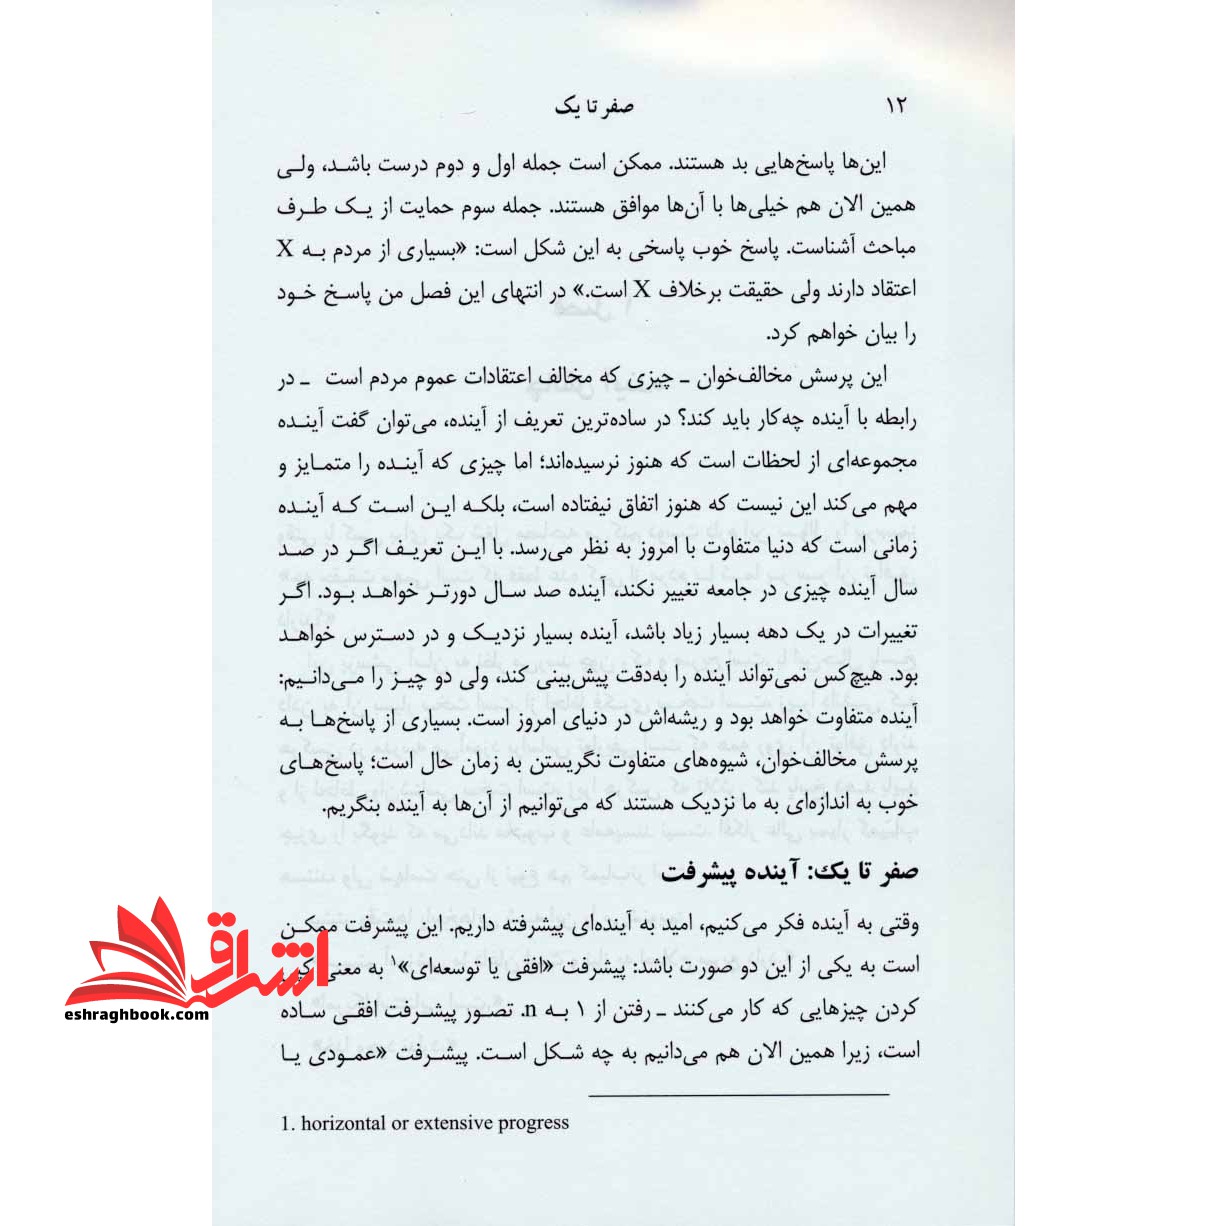 ۱۲
صفر تا یک
این‌ها پاسخ‌هایی بد هستند. ممکن است جمله اول و دوم درست باشد، ولی
همین الان هم خیلی‌ها با آن‌ها موافق هستند. جمله سوم حمایت از یک طرف
مباحث آشناست. پاسخ خوب پاسخی به این شکل است: «بسیاری از مردم به X
اعتقاد دارند ولی حقیقت برخلاف X است.» در انتهای این فصل من پاسخ خود
را بیان خواهم کرد.
این پرسش مخالف‌خوان ـ چیزی که مخالف اعتقادات عموم مردم است ـ در
رابطه با آینده چه‌کار باید کند؟ در ساده‌ترین تعریف از آینده، می‌توان گفت آینده
مجموعه‌ای از لحظات است که هنوز نرسیده‌اند؛ اما چیزی که آینده را متمایز و
مهم می‌کند این نیست که هنوز اتفاق نیفتاده است، بلکه این است که آینده
زمانی است که دنیا متفاوت با امروز به نظر می‌رسد. با این تعریف اگر در صد
سال آینده چیزی در جامعه تغییر نکند، آینده صد سال دورتر خواهد بود. اگر
تغییرات در یک دهه بسیار زیاد باشد، آینده بسیار نزدیک و در دسترس خواهد
بود. هیچ‌کس نمی‌تواند آینده را به‌دقت پیش‌بینی کند، ولی دو چیز را می‌دانیم:
آینده متفاوت خواهد بود و ریشه‌اش در دنیای امروز است. بسیاری از پاسخ‌ها به
پرسش مخالف‌خوان، شیوه‌های متفاوت نگریستن به زمان حال است؛ پاسخ‌های
خوب به اندازه‌ای به ما نزدیک هستند که می‌توانیم از آن‌ها به آینده بنگریم.
صفر تا یک: آینده پیشرفت
وقتی به آینده فکر می‌کنیم، امید به آینده‌ای پیشرفته داریم. این پیشرفت ممکن
است به یکی از این دو صورت باشد: پیشرفت «افقی یا توسعه‌ای»۱ به معنی
کردن چیزهایی که کار می‌کنند ـ رفتن از ۱ به n. تصور پیشرفت افقی ساده
است، زیرا همین الان هم می‌دانیم به چه شکل است. پیشرفت «عمودی یا
1. horizontal or extensive progress
اشراق
eshraghbook.com